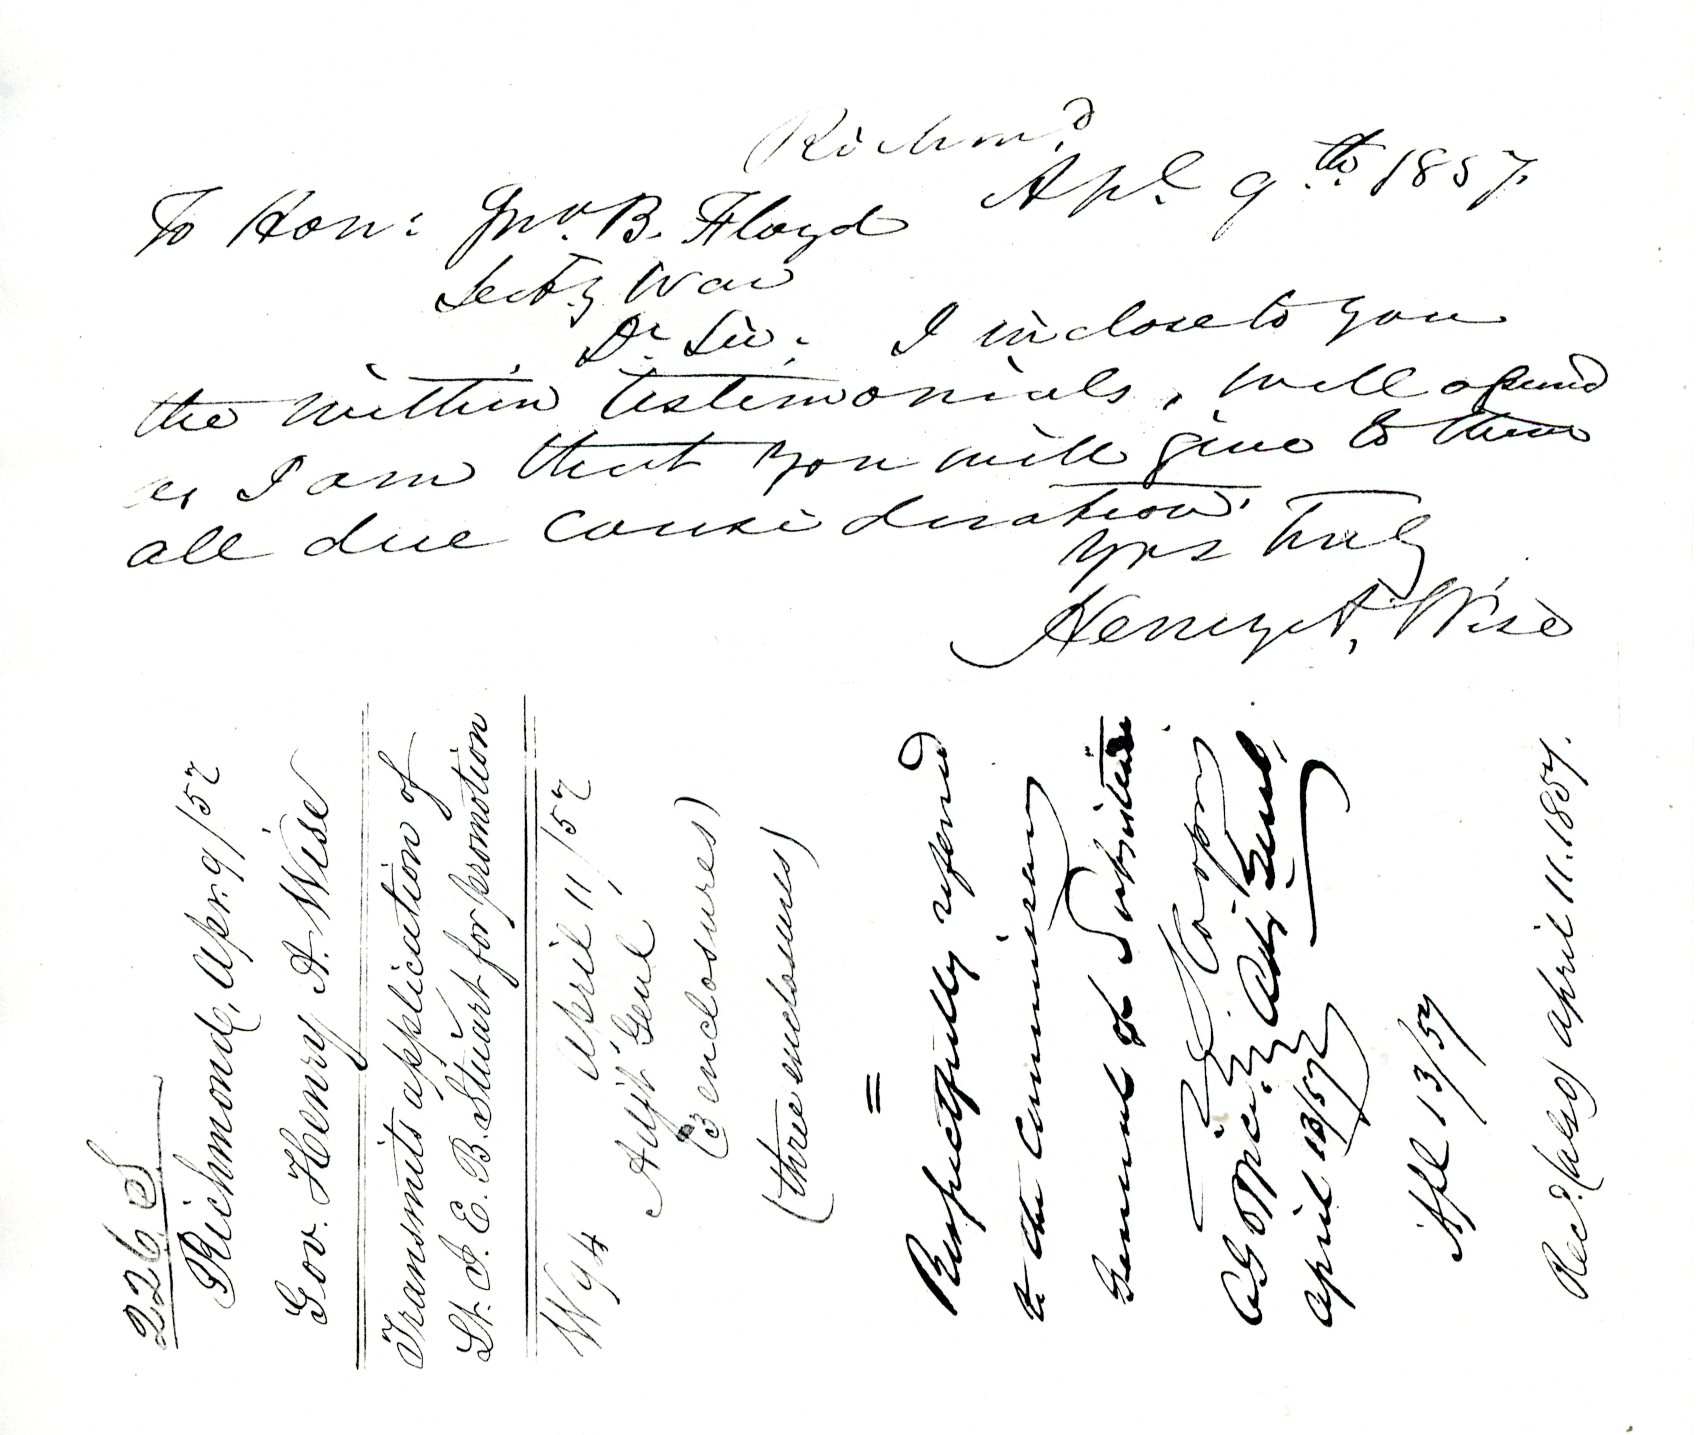 Richm.d
Apl. 9th. 1857.
To Hon: Jno. B. Floyd
Secty War
Dr. Sir: I inclose to you
the within testimonials, well assured
as I am that you will give to them
all due consideration.
Yrs truly
Henry A. Wise
226 S
Richmond, Apr. 9/57
Gov. Henry A. Wise
Transmits application of
Lt. J. E. B. Stuart for promotion
W94 April 11/57
Adjt Genl
(3 enclosures)
(three enclosures)
=
Respectfully referred
to the Commissary
General of Subsistence
S. Cooper
Adj. Genl.
AG Office
April 13/57
Apl 13/57
Recd. (also) April 11. 1857.